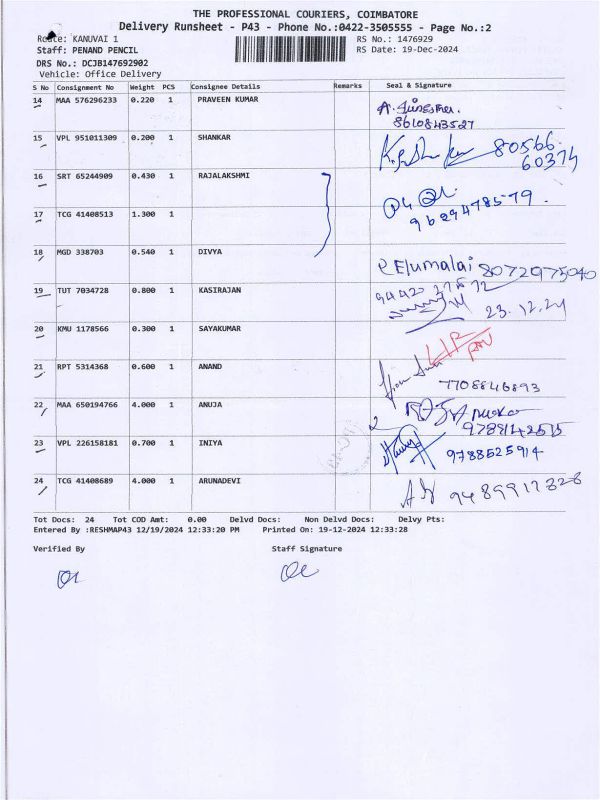 THE PROFESSIONAL COURIERS, COIMBATORE
Delivery Runsheet - P43 - Phone No.:0422-3505555 - Page No.:2
Route: KANUVAI 1
RS No.: 1476929
Staff: PENAND PENCIL
RS Date: 19-Dec-2024
DRS No.: DCJB147692902
Vehicle: Office Delivery
S No Consignment No Weight PCS Consignee Details Remarks Seal & Signature
14 MAA 576296233 0.220 1 PRAVEEN KUMAR
8610843527
15 VPL 951011309 0.200 1 SHANKAR 80566
60374
16 SRT 65244909 0.430 1 RAJALAKSHMI
9629478579.
17 TCG 41408513 1.300 1
18 MGD 338703 0.540 1 DIVYA
Elumalai 8072975040
19 TUT 7034728 0.800 1 KASIRAJAN
23.12.24
20 KMU 1178566 0.300 1 SAYAKUMAR
21 RPT 5314368 0.600 1 ANAND
7708846893
22 MAA 650194766 4.000 1 ANUJA
9788142515
23 VPL 226158181 0.700 1 INIYA 9788525914
24 TCG 41408689 4.000 1 ARUNADEVI
Tot Docs: 24 Tot COD Amt: 0.00 Delvd Docs: Non Delvd Docs: Delvy Pts:
Entered By :RESHMAP43 12/19/2024 12:33:20 PM Printed On: 19-12-2024 12:33:28
Verified By Staff Signature